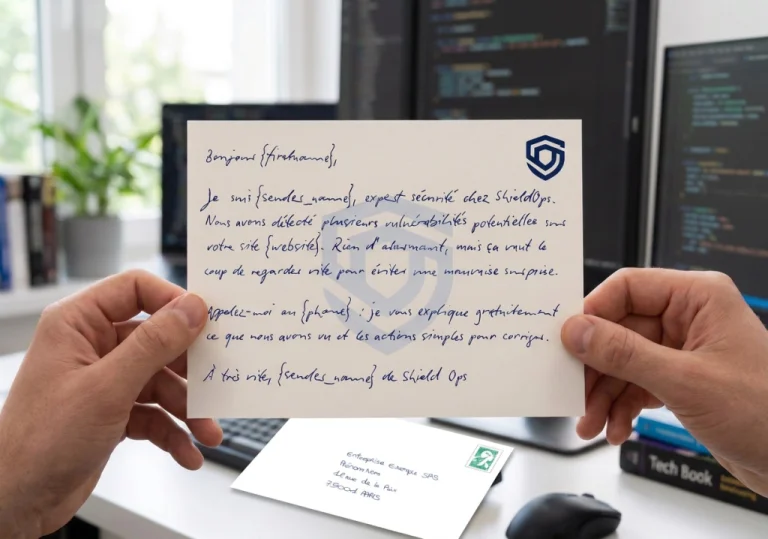 Bonjour {firstname},
Je suis {sender_name}, expert sécurité chez ShieldOps.
Nous avons détecté plusieurs vulnérabilités potentielles sur
votre site {website}. Rien d'alarmant, mais ça vaut le
coup de regarder vite pour éviter une mauvaise surprise.
Appelez-moi au {phone} : je vous explique gratuitement
ce que nous avons vu et les actions simples pour corriger.
À très vite, {sender_name} de Shield Ops
Entreprise Exemple SAS
Prénom Nom
12 rue de la Paix
75001 PARIS
Tech Book